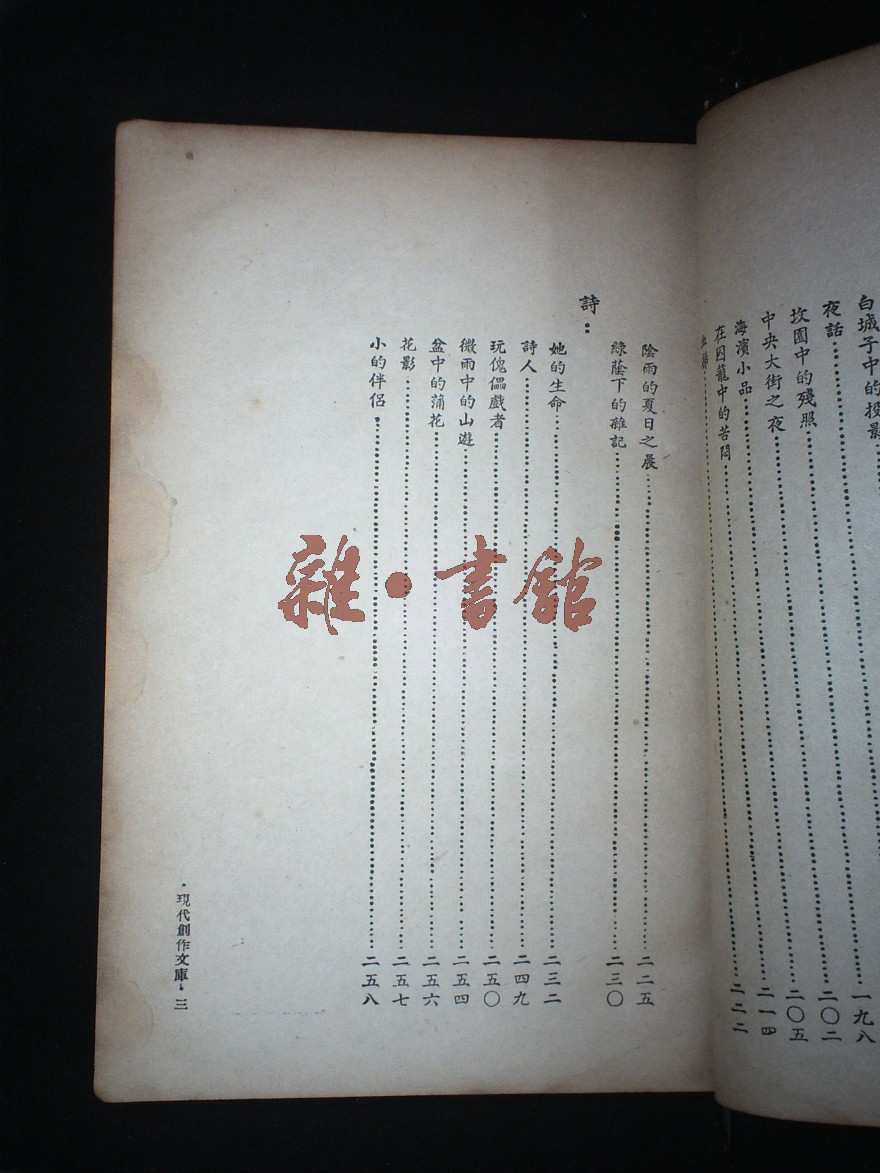 白城子中的投影……一九八
夜話……二〇二
坟園中的殘照……二〇五
中央大街之夜……二一四
海濱小品……二二二
在囚籠中的苦悶……
陰雨的夏日之晨……二二五
綠蔭下的雜記……二三〇
詩：
她的生命……二三二
詩人……二四九
玩傀儡戲者……二五〇
微雨中的山遊……二五四
盆中的蒲花……二五六
花影……二五七
小的伴侶……二五八
·現代創作文庫·三
雜·書館